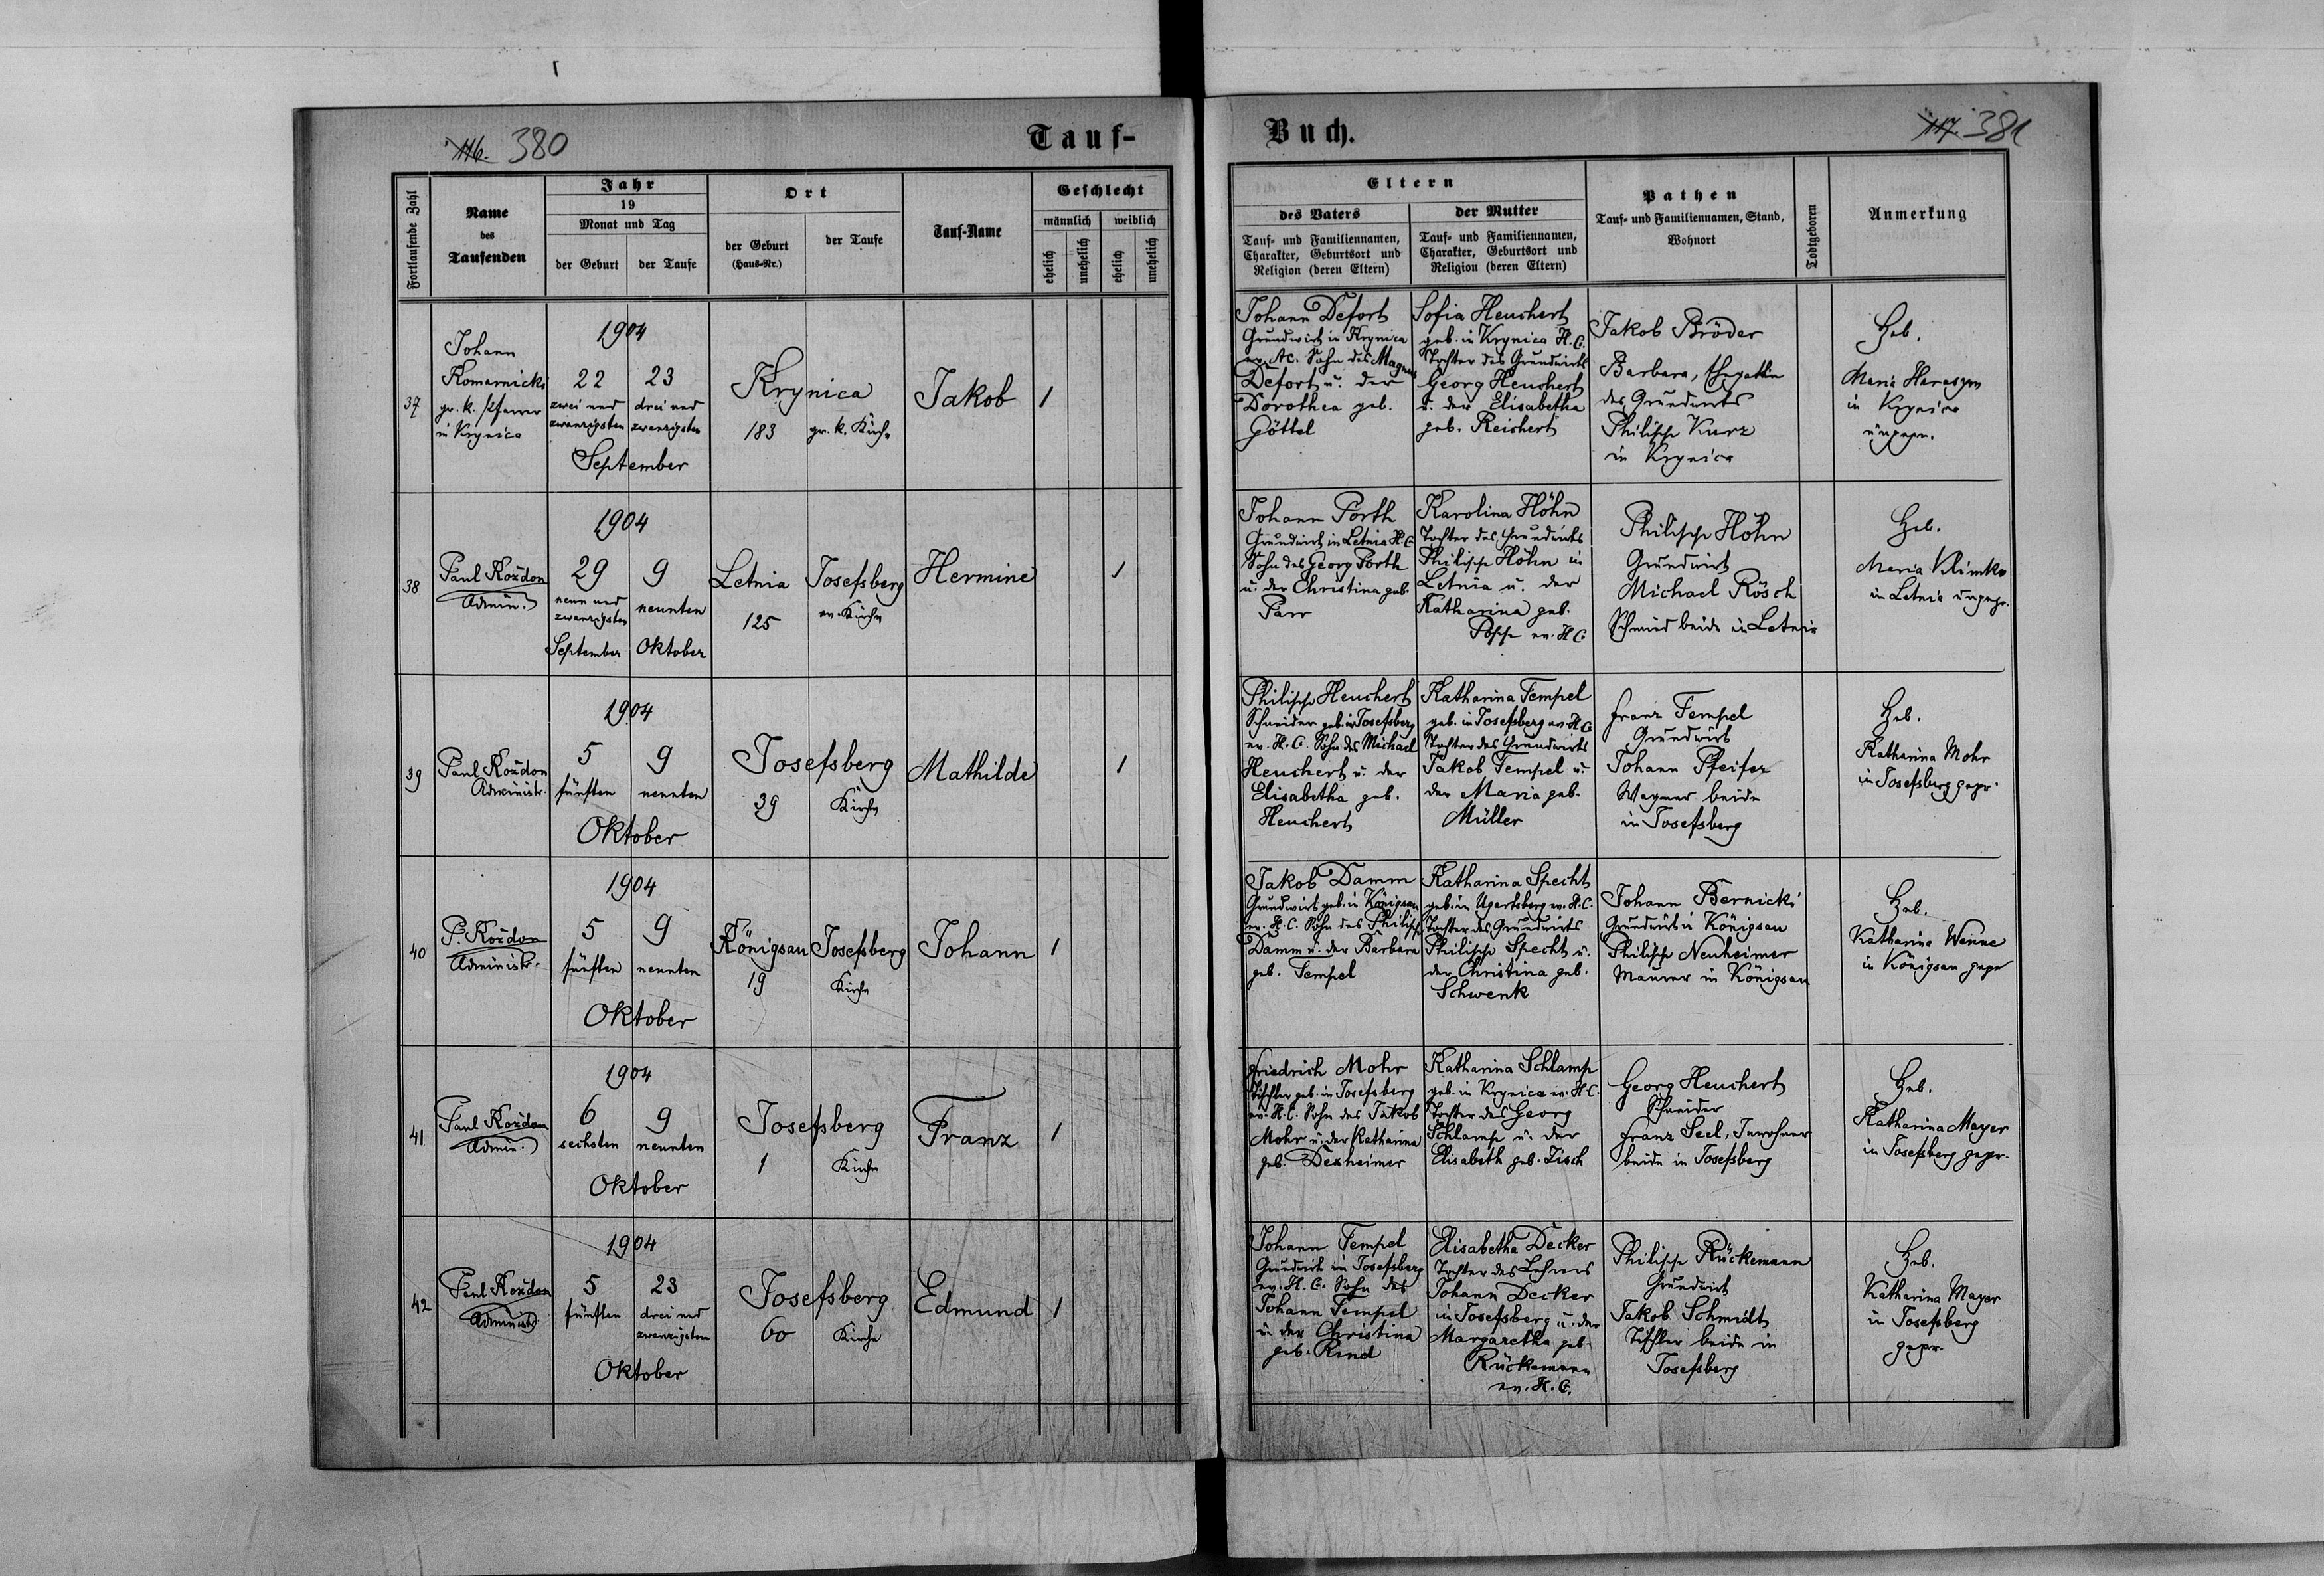 116. 380
Tauf-
Buch.
117. 381
Fortlaufende Zahl
Name
des
Taufenden
Jahr
19
Monat und Tag
der Geburt
der Taufe
Ort
der Geburt
(Haus-Nr.)
der Taufe
Tauf-Name
Geschlecht
männlich
weiblich
ehelich
unehelich
ehelich
unehelich
Eltern
des Vaters
Tauf- und Familiennamen,
Charakter, Geburtsort und
Religion (deren Eltern)
der Mutter
Tauf- und Familiennamen,
Charakter, Geburtsort und
Religion (deren Eltern)
Pathen
Tauf- und Familiennamen, Stand,
Wohnort
Todtgeboren
Anmerkung
37
Johann
Komarnicki
gr. k. Pfarrer
in Krynica
1904
22
zwei und
zwanzigsten
23
drei und
zwanzigsten
September
Krynica
183
gr. k. Kirche
Jakob
1
Johann Defort
Grundwirt in Krynica
ev. AC. Sohn des Magnus
Defort u. der
Dorothea geb.
Göttel
Sofia Heuchert
geb. in Krynica H. C.
Tochter des Grundwirts
Georg Heuchert
u. der Elisabetha
geb. Reichert
Jakob Bröder
Barbara, Ehegattin
des Grundwirts
Philipp Kurz
in Krynica
Heb.
Maria Harasym
in Krynica
ungepr.
38
Paul Kozdon
Admin.
1904
29
neun und
zwanzigsten
September
9
neunten
Oktober
Letnia
125
Josefsberg
ev. Kirche
Hermine
1
Johann Porth
Grundwirt in Letnia H. C
Sohn des Georg Porth
u. der Christina geb.
Parr
Karolina Höhn
Tochter des Grundwirts
Philipp Höhn in
Letnia u. der
Katharina geb.
Popp ev. H C
Philipp Höhn
Grundwirt
Michael Rösch
Schmid beide in Letnia
Heb.
Maria Klimko
in Letnia ungepr.
39
Paul Kozdon
Administr.
1904
5
fünften
9
neunten
Oktober
Josefsberg
39
Kirche
Mathilde
1
Philipp Heuchert
Schneider geb. in Josefsberg
ev. H. C. Sohn des Michael
Heuchert u. der
Elisabetha geb.
Heuchert
Katharina Tempel
geb. in Josefsberg ev. H C
Tochter des Grundwirts
Jakob Tempel u.
der Maria geb.
Müller
Franz Tempel
Grundwirt
Johann Pfeifer
Wagner beide
in Josefsberg
Heb.
Katharina Mohr
in Josefsberg gepr.
40
P. Kozdon
Administr.
1904
5
fünften
9
neunten
Oktober
Königsau
19
Josefsberg
Kirche
Johann
1
Jakob Damm
Grundwirt geb. in Königsau
ev. H. C. Sohn des Philipp
Damm u. der Barbara
geb. Tempel
Katharina Specht
geb. in Ugartsberg ev. H. C.
Tochter des Grundwirts
Philipp Specht u.
der Christina geb.
Schwenk
Johann Bernicki
Grundwirt in Königsau
Philipp Neuheimer
Maurer in Königsau
Heb.
Katharina Wenne
in Königsau gepr
41
Paul Kozdon
Admin.
1904
6
sechsten
9
neunten
Oktober
Josefsberg
1
Kirche
Franz
1
Friedrich Mohr
Tischler geb. in Josefsberg
ev. H. C. Sohn des Jakob
Mohr u. der Katharina
geb. Dexheimer
Katharina Schlamp
geb. in Krynica ev. H C.
Tochter des Georg
Schlamp u. der
Elisabeth geb. Zisch
Georg Heuchert
Schneider
Franz Seel, Inwohner
beide in Josefsberg
Heb.
Katharina Mayer
in Josefsberg gepr.
42
Paul Kozdon
Administr.
1904
5
fünften
23
drei und
zwanzigsten
Oktober
Josefsberg
60
Kirche
Edmund
1
Johann Tempel
Grundwirt in Josefsberg
ev. H. C. Sohn des
Johann Tempel
u. der Christina
geb. Rind
Elisabetha Decker
Tochter des Lehrers
Johann Decker
in Josefsberg u. der
Margaretha geb.
Rückemann
ev. H. C.
Philipp Rückemann
Grundwirt
Jakob Schmidt
Tischler beide in
Josefsberg
Heb.
Katharina Mayer
in Josefsberg
gepr.